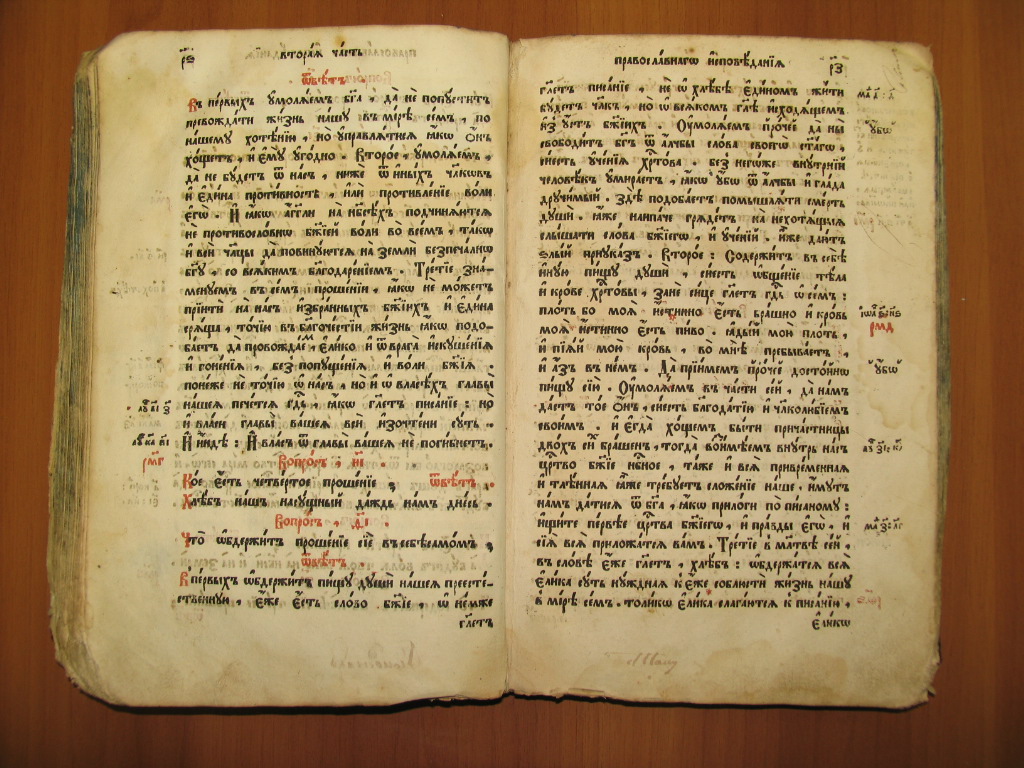 рѕ҃ вторая часть
ѿвѣтъ.
Въ первыхъ умоляемъ бг҃а, да не попуститъ
превождати жизнь нашу въ мірѣ семъ, по
нашему хотѣнію, но ᲂуправлѧтисѧ ꙗкѡ Онъ
хощетъ, и ємꙋ угодно. Второе, умолѧемъ,
да не будетъ ѿ насъ, ниже ѿ иныхъ чл҃кѡвъ
и єдина противность, или противленіе воли
єгѡ. И ꙗкѡ агг҃ли на нб҃сѣхъ подчинѧютсѧ
не противословнѡ бж҃іей воли во всемъ, такѡ
и вси чл҃цы да повинуютсѧ на земли безпечалнѡ
бг҃у, со всѧкимъ благодареніемъ. Третіе зна-
менуемъ въ семъ прошеніи, ꙗкѡ не можетъ
пріити на насъ избранныхъ бж҃іихъ и єдина
точію въ благочестіи жизнь ꙗкѡ подо-
баетъ да провождаемъ, єликѡ и ѿ врага искушеніѧ
и гоненіѧ, безъ попущеніѧ и воли бж҃іѧ.
понеже не точію ѡ насъ, но и ѡ власѣхъ главы
нашеѧ печетсѧ гд҃ь, ꙗкѡ гл҃етъ писаніе: но
и власы главы вашеѧ вси изочтени суть.
лук҃ ві з҃
И индѣ: И власъ ѿ главы вашеѧ не погибнетъ.
Вопросъ, иі.
Кое єсть четвертое прошеніе; ѿвѣтъ.
Хлѣбъ нашъ насущный даждь намъ днесь.
Вопросъ, ѳі.
Что ѡбдержитъ прошеніе сіе въ себѣ самомъ;
ѿвѣтъ.
Впервыхъ ѡбдержитъ пищу души нашеѧ преесте-
ственную, єже єсть слово бж҃іе, ѡ немже
гл҃етъ
православнагѡ исповѣданіѧ рз҃
гл҃етъ писаніе, не ѡ хлѣбѣ єдиномъ жити
будетъ чл҃къ, но ѡ всѧкомъ гл҃ѣ исходѧщемъ
изъ устъ бж҃іихъ. Оумолѧемъ прочее да ны
свободитъ бг҃ъ ѿ алчбы слова своегѡ ст҃агѡ,
сиесть ученіѧ хр҃това. безъ негѡже внутрній
человѣкъ умираетъ, ꙗкѡ убѡ ѿ алчбы и глада
дручимый. Здѣ подобаетъ помышлѧти смерть
души. ꙗже наипаче грѧдетъ на нехотѧщыѧ
слышати слова бж҃іегѡ, и ученій. иже даютъ
ѕлый приуказъ. Второе: Содержитъ въ себѣ
иную пищу души, сиесть ѡбщеніе тѣла
и крове хр҃товы, зане сице гл҃етъ гд҃ь ѡ семъ:
плоть бо моѧ истинно єсть брашно и кровь
моѧ истинно єсть пиво. ꙗдый мою плоть,
рмд
и піѧй мою кровь, во мнѣ пребываетъ,
и азъ въ немъ. Да пріимемъ прочее достойнѡ
пищу сію. Оумолѧемъ въ части сей, да намъ
дастъ тое Онъ, сиесть благодатію и чл҃колюбіемъ
своимъ. и єгда хощемъ быти причастницы
двохъ сей брашенъ, тогда воимѣемъ внутрь насъ
црт҃во бж҃іе нб҃ное, таже и всѧ привременнаѧ
и тлѣннаѧ ꙗже требуетъ сложеніе наше, имутъ
намъ датисѧ ѿ бг҃а, ꙗкѡ прилоги по писаному:
ищите первѣе црт҃ва бж҃іегѡ, и правды єгѡ, и
сіѧ всѧ приложатсѧ вамъ. Третіе в мл҃твѣ сей,
въ словѣ єже гл҃етъ, хлѣбъ: ѡбдержатсѧ всѧ
єлика суть нуждная к єже соблюсти жизнь нашу
в мірѣ семъ. толикѡ єлика слагаютсѧ к писанію,
єликѡ